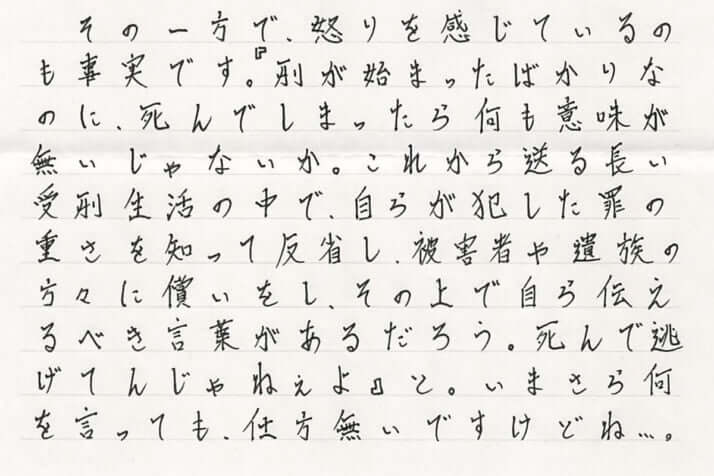 その一方で、怒りを感じているの
も事実です。『刑が始まったばかりな
のに、死んでしまったら何も意味が
無いじゃないか。これから送る長い
受刑生活の中で、自らが犯した罪の
重さを知って反省し、被害者や遺族の
方々に償いをし、その上で自ら伝え
るべき言葉があるだろう。死んで逃
げてんじゃねぇよ』と。いまさら何
を言っても、仕方無いですけどね…。